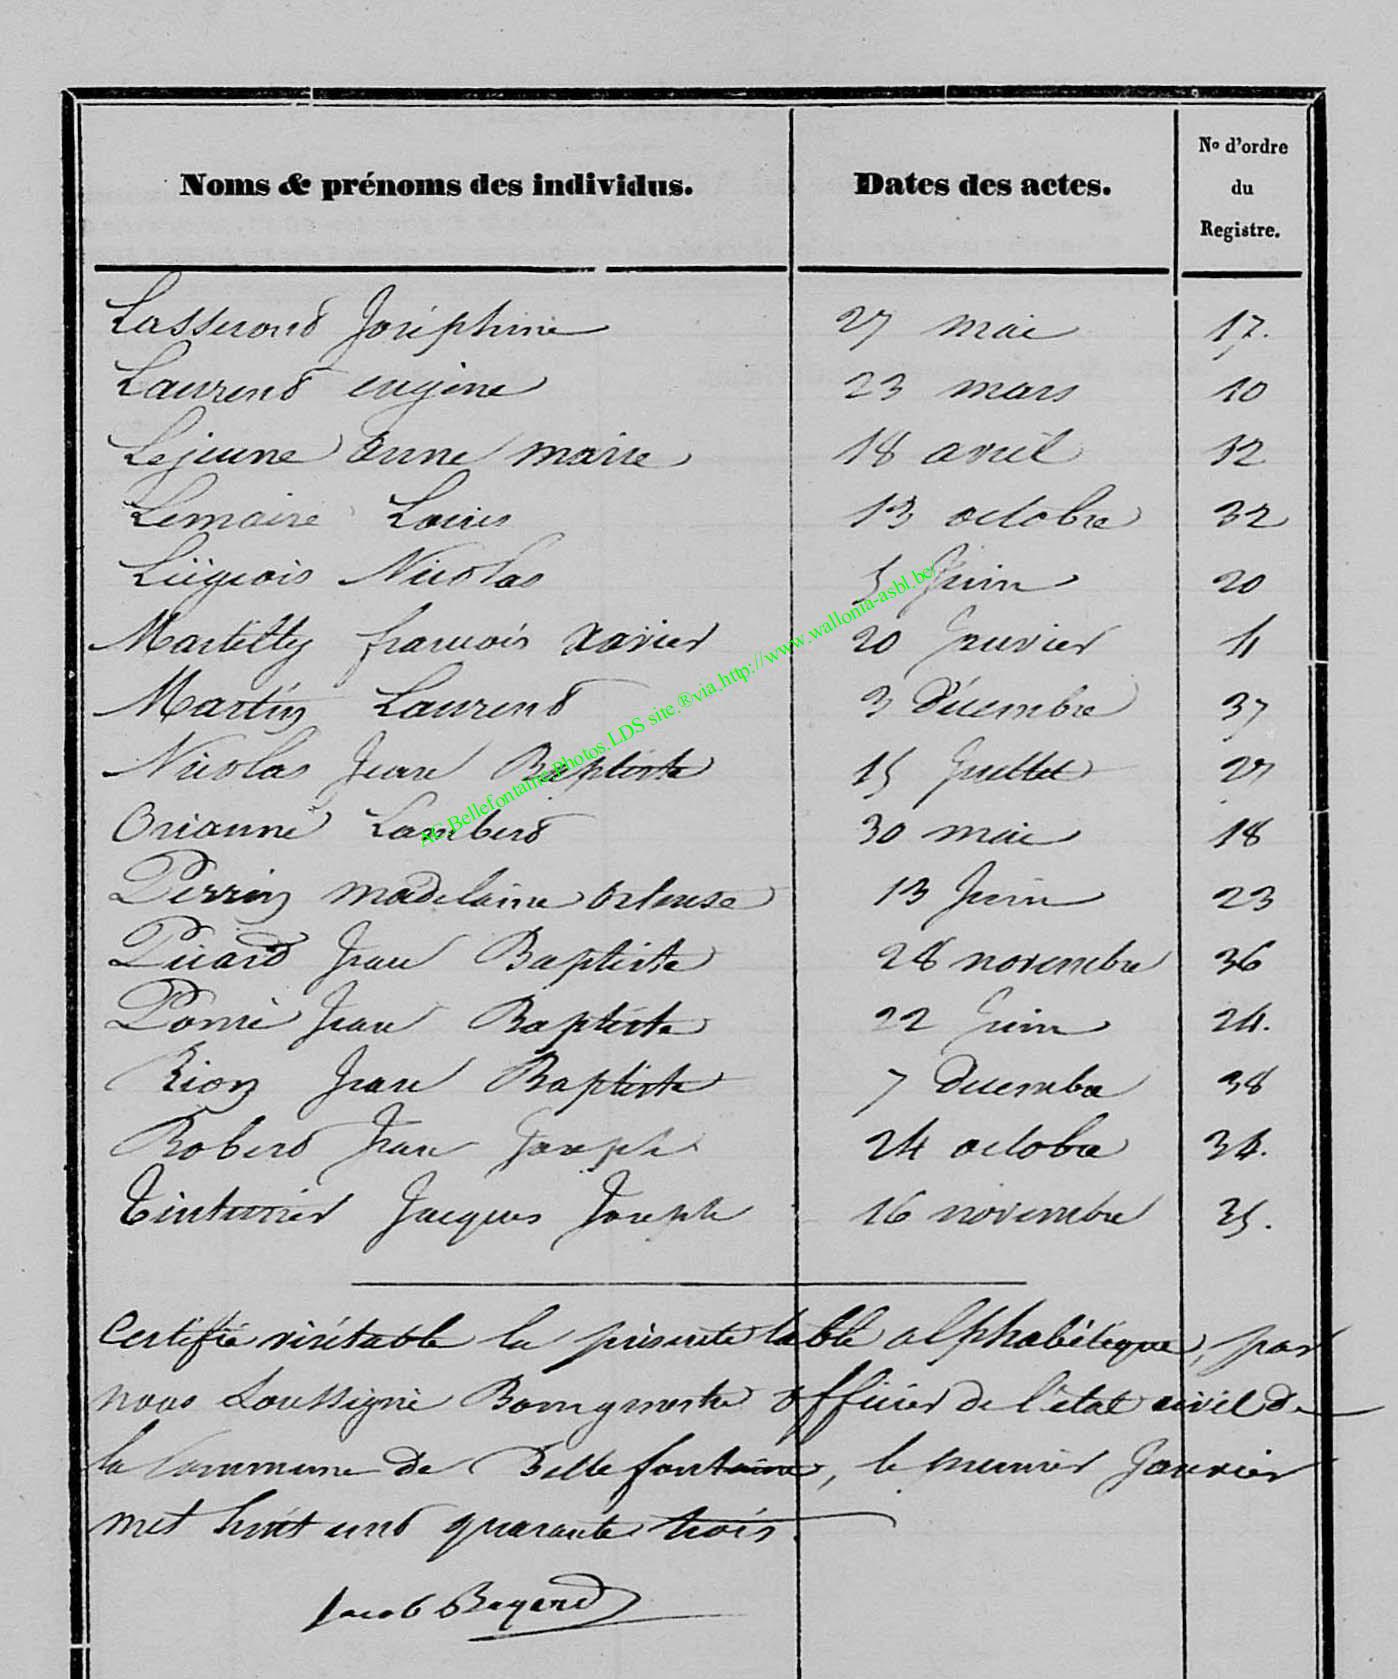 Noms & prénoms des individus. Dates des actes. No d'ordre du Registre.
Lasserond Joséphine 27 mai 17.
Laurend eugène 23 mars 10
Lejeune anne marie 18 avril 12
Lemaire Louis 13 octobre 32
Liégeois Nicolas 5 Juin 20
Martilly francois xavier 20 Janvier 4
Martin Laurend 3 décembre 37
Nicolas Jean Baptiste 15 Juillet 27
Orianne Lamberd 30 mai 18
Perrin madelaine ortense 13 Juin 23
Picard Jean Baptiste 28 novembre 36
Poncé Jean Baptiste 22 Juin 24.
Rion Jean Baptiste 7 decembre 38
Roberd Jean Joseph 24 octobre 34.
Tinturier Jacques Joseph 16 novembre 35.
Certifié véritable la présente table alphabétique, par
nous Soussigné Bourgmestre officier de l'état civil de
la Commune de Bellefontaine, le premier Janvier
mil huit cend quarante trois.
Jacob Bayard
AC.Bellefontaine.Photos.LDS site.®via.http://www.wallonia-asbl.be/